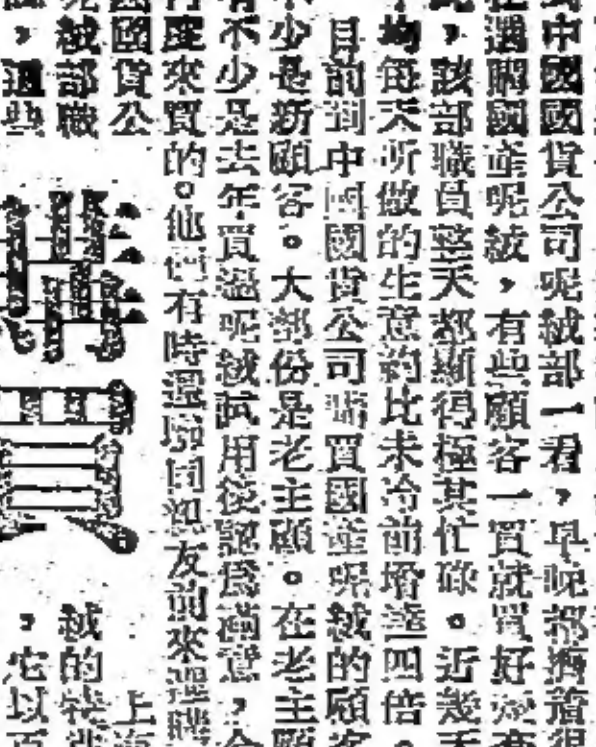 中國國貨公司呢絨部一看，早晚都擠著
選購國產呢絨，有些顧客一買就買好幾套
，該部職員整天都顯得極其忙碌。近幾
均每天所做的生意約比未冷前增達四倍。
目前到中國國貨公司購買國產呢絨的顧客
少是新顧客。大部份是老主顧。在老主顧
不少是去年買過呢絨試用後認爲滿意，今
度來買的。他們有時還陪同親友前來選購
國貨公
絨部職
，這些
買
上海
絨的
，它以